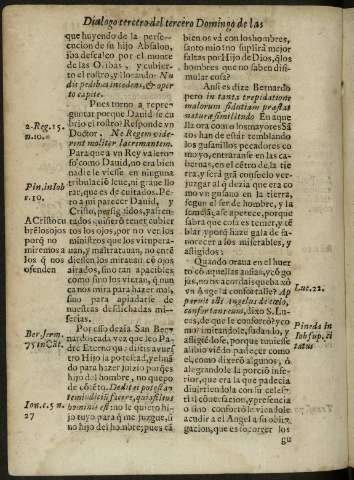 Dialogo tercero del tercero Domingo de las
que huyendo de la perse-
cucion de su hijo Absalon,
iba descalço por el monte
de las Olibas, y cubier-
to el rostro, y llorando: Nu
dis pedibus incedens, & oper
to capite.
Pues torno a repre-
guntar porque Dauid se cu
brio el rostro? Responde vn
Doctor. Ne Regem vide-
rent moliter lacrimantem.
Para que a vn Rey valero-
so como Dauid, no era bien
nadie le viesse en ninguna
tribulaciõ leue, ni graue llo
rar, que es de cuitados. Pe-
ro a mi parecer Dauid, y
Christo, perseguidos, y afren-
tados, quiserõ tener cubier
tos los ojos, por no ver los
ministros que los vitupera-
uan, y maltratauan, no entẽ
diessen los mirauan cõ ojos
airados, sino tan apacibles
como sino los vieran, q̃ nun
ca nos mira para hazer mal,
sino para apiadarse de
nuestras desdichadas mi-
serias.
Por esso dezia San Ber-
nardo cada vez que leo Pa-
dre Eterno que distes a vues
tro Hijo la potestad, y el mã
do para hazer juizio porq̃ es
hijo del hombre, no quepo
de cõtẽto. Dedit ei potesta
tem iudiciũ facere, quia filius
hominis est no le quieto hi-
jo tuyo para q̃ me juzgue, si
no hijo del hombre; pues cã
2. Reg. 15.
n. 10.
Pin. in Iob
c. 10.
A Cristo cu
brẽ los ojos
porq̃ no
miremos a
los q̃ nos
ofenden
Ber. serm.
75 in Cãt.
Ioã. c. 5 n.
27
bien os vá con los hombres,
santo mio: no suplirá mejor
faltas por Hijo de Dios, q̃ los
hombres que no saben dissi-
mular cosa?
Ansi es dize Bernardo
pero in tanta trepidatione
malorum fidutiam præstat
naturæ similitudo En aque
lla ora como los mayores Sã
tos han de estàr temblando
los gusanillos pecadores co
mo yo, entraranse en las ca-
bernas, en el cẽtro de la tie
rra, y será grã consuelo ver
juzgar al q̃ dezia que era co
mo gusano en la tierra,
segun el ser de hombre, y la
semejãça, se aparece, porque
sabra que cosa es temer, y tẽ
blar y porq̃ haze gala de fa-
norecer a los miserables, y
afligidos:
Quando oraua en el huer
to cõ aquellas ansias, y cõgo
jas, no vn Angel a confortalle? Ap
paruit illi Angelus de cœlo,
confortans eum, dixo S. Lu-
cas, de que le confortó? y co
mo? infundole, sudando, y
afligẽdose, porque tuuiesse
aliuio vẽdo padecer como
el, como dixerõ algunos; ó
alegrandole la porciõ infe-
rior, que era la que padecia
diuirtiendola con su celes-
tial cõuersacion, y presencia
o sino confortole viendole
acudir a el Angel a su obli-
gacion, que es socorrer los
gu
Luc. 22.
Pineda in
Iob sup. ci
tatus